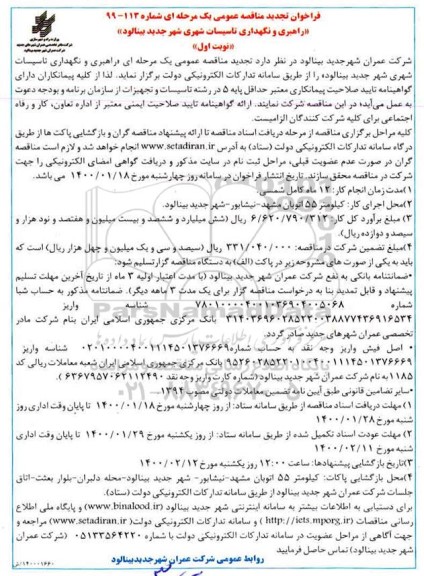 فراخوان تجدید مناقصه عمومی یک مرحله ای شماره ۱۱۳-۹۹
«راهبری و نگهداری تاسیسات شهری شهر جدید بینالود»
«نوبت اول»
شرکت عمران شهرجدید بینالود در نظر دارد تجدید مناقصه عمومی یک مرحله ای «راهبری و نگهداری تاسیسات
شهری شهر جدید بینالود» را از طریق سامانه تدارکات الکترونیکی دولت برگزار نماید. لذا از کلیه پیمانکاران دارای
گواهینامه تایید صلاحیت پیمانکاری معتبر حداقل پایه ۵ در رشته تاسیسات و تجهیزات از سازمان برنامه و بودجه دعوت
به عمل می‌آید، در این مناقصه شرکت نمایند. ارائه گواهینامه تایید صلاحیت ایمنی معتبر از اداره تعاون، کار و رفاه
اجتماعی برای کلیه شرکت کنندگان الزامیست.
کلیه مراحل برگزاری مناقصه از مرحله دریافت اسناد مناقصه تا ارائه پیشنهاد مناقصه گران و بازگشایی پاکت ها از طریق
درگاه سامانه تدارکات الکترونیکی دولت (ستاد) به آدرس www.setadiran.ir انجام خواهد شد و لازم است مناقصه
گران در صورت عدم عضویت قبلی، مراحل ثبت نام در سایت مذکور و دریافت گواهی امضای الکترونیکی را جهت
شرکت در مناقصه محقق سازند. تاریخ انتشار فراخوان در سامانه روز چهارشنبه مورخ ۱۴۰۰/۰۱/۱۸ می باشد.
۱)مدت زمان انجام کار: ۱۲ ماه کامل شمسی
۲)محل اجرای کار: کیلومتر ۵۵ اتوبان مشهد-نیشابور-شهر جدید بینالود.
۳) مبلغ برآورد کل کار: ۶/۶۲۰/۷۹۰/۳۱۲ ریال (شش میلیارد و ششصد و بیست میلیون و هفتصد و نود هزار و
سیصد و دوازده ریال).
۴)مبلغ تضمین شرکت در مناقصه: ۳۳۱/۰۴۰/۰۰۰ ریال (سیصد و سی و یک میلیون و چهل هزار ریال) است که
باید به یکی از صورت های مشروحه زیر در پاکت (الف) به دستگاه مناقصه گزار تسلیم شود:
•ضمانتنامه بانکی به نفع شرکت عمران شهر جدید بینالود (با مدت اعتبار اولیه ۳ ماه از تاریخ آخرین مهلت تسلیم
پیشنهاد و قابل تمدید بنا به درخواست مناقصه گزار برای یک مدت ۳ ماهه دیگر). ضمانتنامه مذکور به حساب شبا
شماره شناسه واریز
بانک مرکزی جمهوری اسلامی ایران بنام شرکت مادر
تخصصی عمران شهرهای جدید صادر گردد.
• اصل فیش واریز وجه نقد به حساب شماره شناسه واریز
بانک مرکزی جمهوری اسلامی ایران شعبه معاملات ریالی کد
۱۱۸۵ به نام شرکت عمران شهر جدید بینالود (شماره کارت واریز وجه نقد ).
•سایر تضامین قانونی طبق آیین نامه تضمین معاملات دولتی مصوب ۱۳۹۴.
۱) مهلت دریافت اسناد مناقصه از طریق سامانه ستاد: از روز چهارشنبه مورخ ۱۴۰۰/۰۱/۱۸ تا پایان وقت اداری روز
شنبه مورخ ۱۴۰۰/۰۱/۲۸
۲) مهلت عودت اسناد تکمیل شده از طریق سامانه ستاد: از روز یکشنبه مورخ ۱۴۰۰/۰۱/۲۹ تا پایان وقت اداری
شنبه مورخ ۱۴۰۰/۰۲/۱۱
۳)تاریخ بازگشایی پیشنهادها: ساعت ۱۲:۰۰ روز یکشنبه مورخ ۱۴۰۰/۰۲/۱۲
۴)محل بازگشایی پاکات: کیلومتر ۵۵ اتوبان مشهد-نیشابور- شهر جدید بینالود-محله دلبران-بلوار بعثت-اتاق
جلسات شرکت عمران شهر جدید بینالود از طریق سامانه تدارکات الکترونیکی دولت (ستاد).
برای دستیابی به اطلاعات بیشتر به سامانه اینترنتی شهر جدید بینالود (www.binalood.ir) و پایگاه ملی اطلاع
رسانی مناقصات (http://iets.mporg.ir) و سامانه تدارکات الکترونیکی دولت (www.setadiran.ir) مراجعه و
جهت آگاهی از مراحل عضویت در سامانه تدارکات الکترونیکی دولت با شماره ۰۵۱۳۳۵۶۴۲۲۰ (شرکت عمران
شهر جدید بینالود) تماس حاصل فرمایید
روابط عمومی شرکت عمران شهرجدیدبینالود